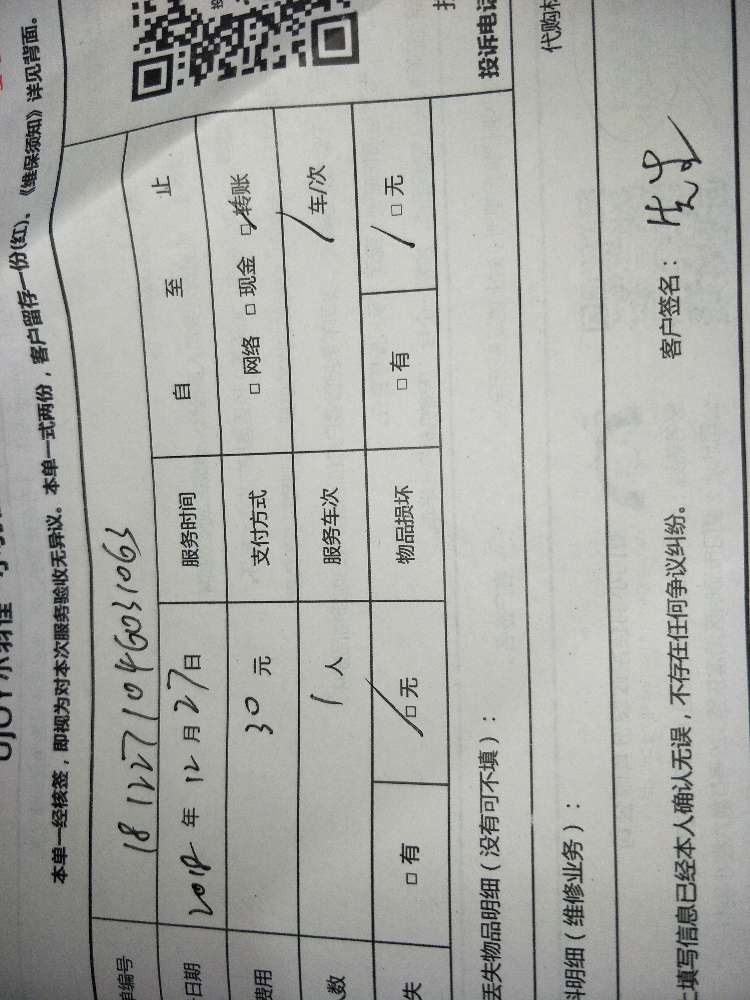 本单一经核签，即视为对本次服务验收无异议。本单一式两份，客户留存一份(红)、《维保须知》详见背面。
单编号 181227104G031063
日期 2018 年 12 月 27 日 服务时间 自 至 止
费用 30 元 支付方式 □ 网络 □ 现金 □ 转账
人数 1 人 服务车次 / 车/次
失 □ 有 □ 无 物品损坏 □ 有 □ 无
丢失物品明细（没有可不填）：
料明细（维修业务）：
填写信息已经本人确认无误，不存在任何争议纠纷。
客户签名： 先生
投诉电话
代购